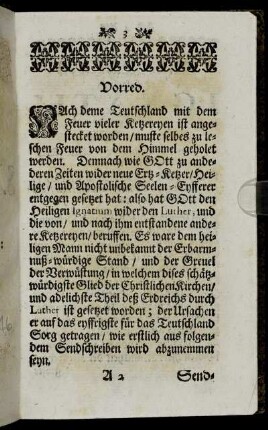 3
Vorred.
NAch deme Teutschland mit dem
Feuer vieler Ketzereyen ist ange-
stecket worden/ muste selbes zu le-
schen Feuer von dem Himmel geholet
werden. Demnach wie GOtt zu ande-
deren Zeiten wider neue Ertz-Ketzer/ Hei-
lige / und Apostolische Seelen-Eyfferer
entgegen gesetzt hat: also hat GOtt den
Heiligen Ignatium wider den Luther, und
die von/ und nach ihm entstandene ande-
re Ketzereyen/ beruffen. Es ware dem hei-
ligen Mann nicht unbekannt der Erbarm-
nuß-würdige Stand / und der Greuel
der Verwüstung/ in welchem dises schätz-
würdigste Glied der Christlichen Kirchen/
und adelichste Theil deß Erdreichs durch
Luther ist gesetzet worden; der Ursachen
er auf das eyffrigste für das Teutschland
Sorg getragen/ wie erstlich aus folgen-
dem Sendschreiben wird abzunemmen
seyn.
A 2 Send-